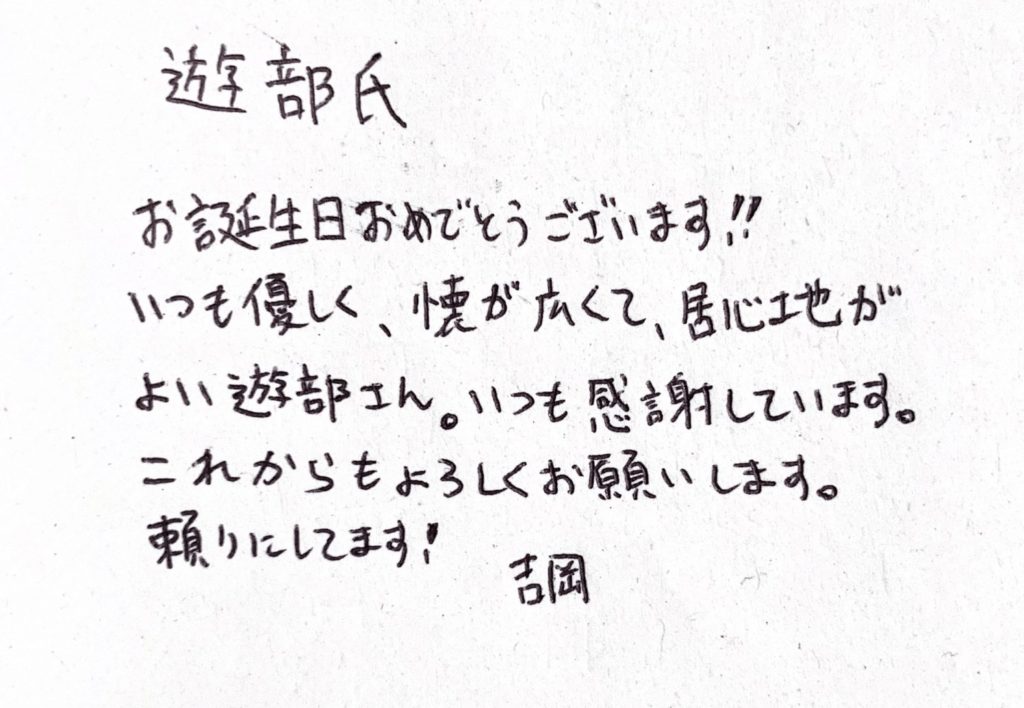 遊部氏
お誕生日おめでとうございます!!
いつも優しく、懐が広くて、居心地が
よい遊部さん。いつも感謝しています。
これからもよろしくお願いします。
頼りにしてます!
吉岡